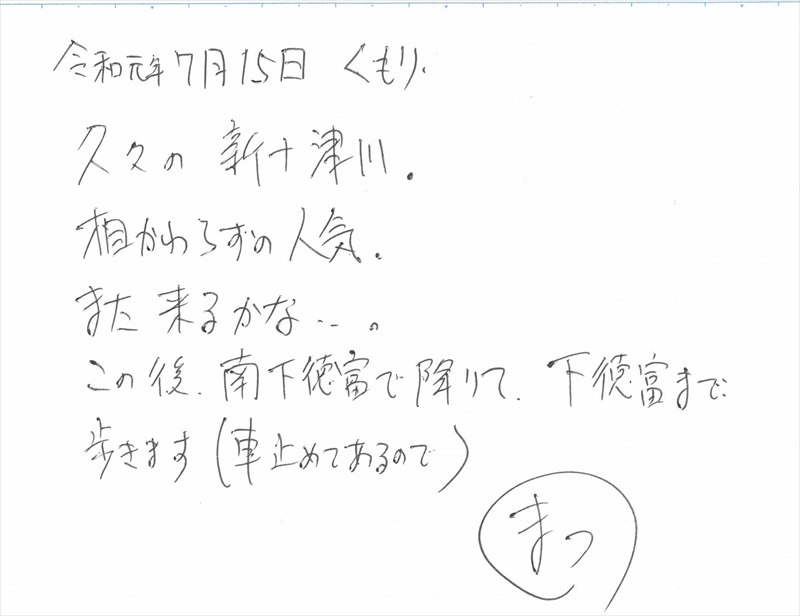 令和元年7月15日 くもり.
久々の 新十津川.
相かわらずの人気.
また 来るかな…。
この後、南下徳富で降りて、下徳富まで
歩きます(車止めてあるので)
まっ